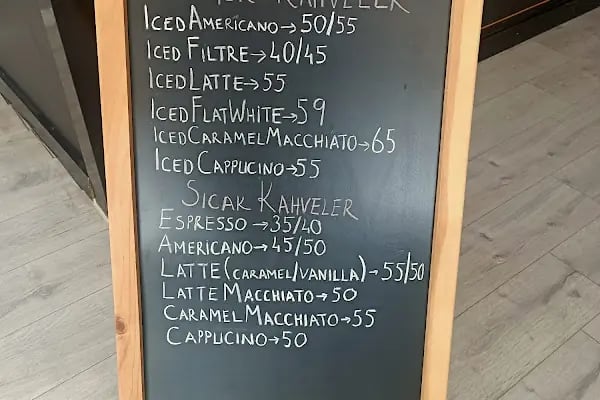 KAHVELER
ICED AMERICANO→50/55
ICED FILTRE→40/45
ICED LATTE→55
ICED FLAT WHITE→59
ICED CARAMEL MACCHIATO→65
ICED CAPPUCINO→55
SICAK KAHVELER
ESPRESSO→35/40
AMERICANO→45/50
LATTE (CARAMEL/VANILLA)→55/50
LATTE MACCHIATO→50
CARAMEL MACCHIATO→55
CAPPUCINO→50